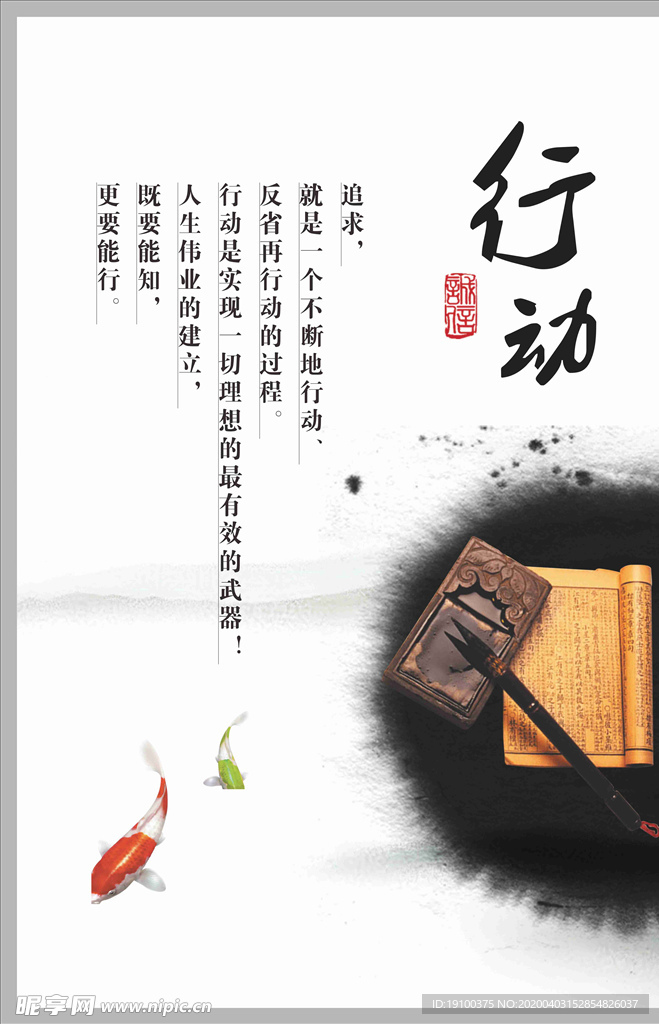 行动
誠信
追求，
就是一个不断地行动、
反省再行动的过程。
行动是实现一切理想的最有效的武器！
人生伟业的建立，
既要能知，
更要能行。
昵享网 www.nipic.cn
ID:19100375 NO:20200403152854826037